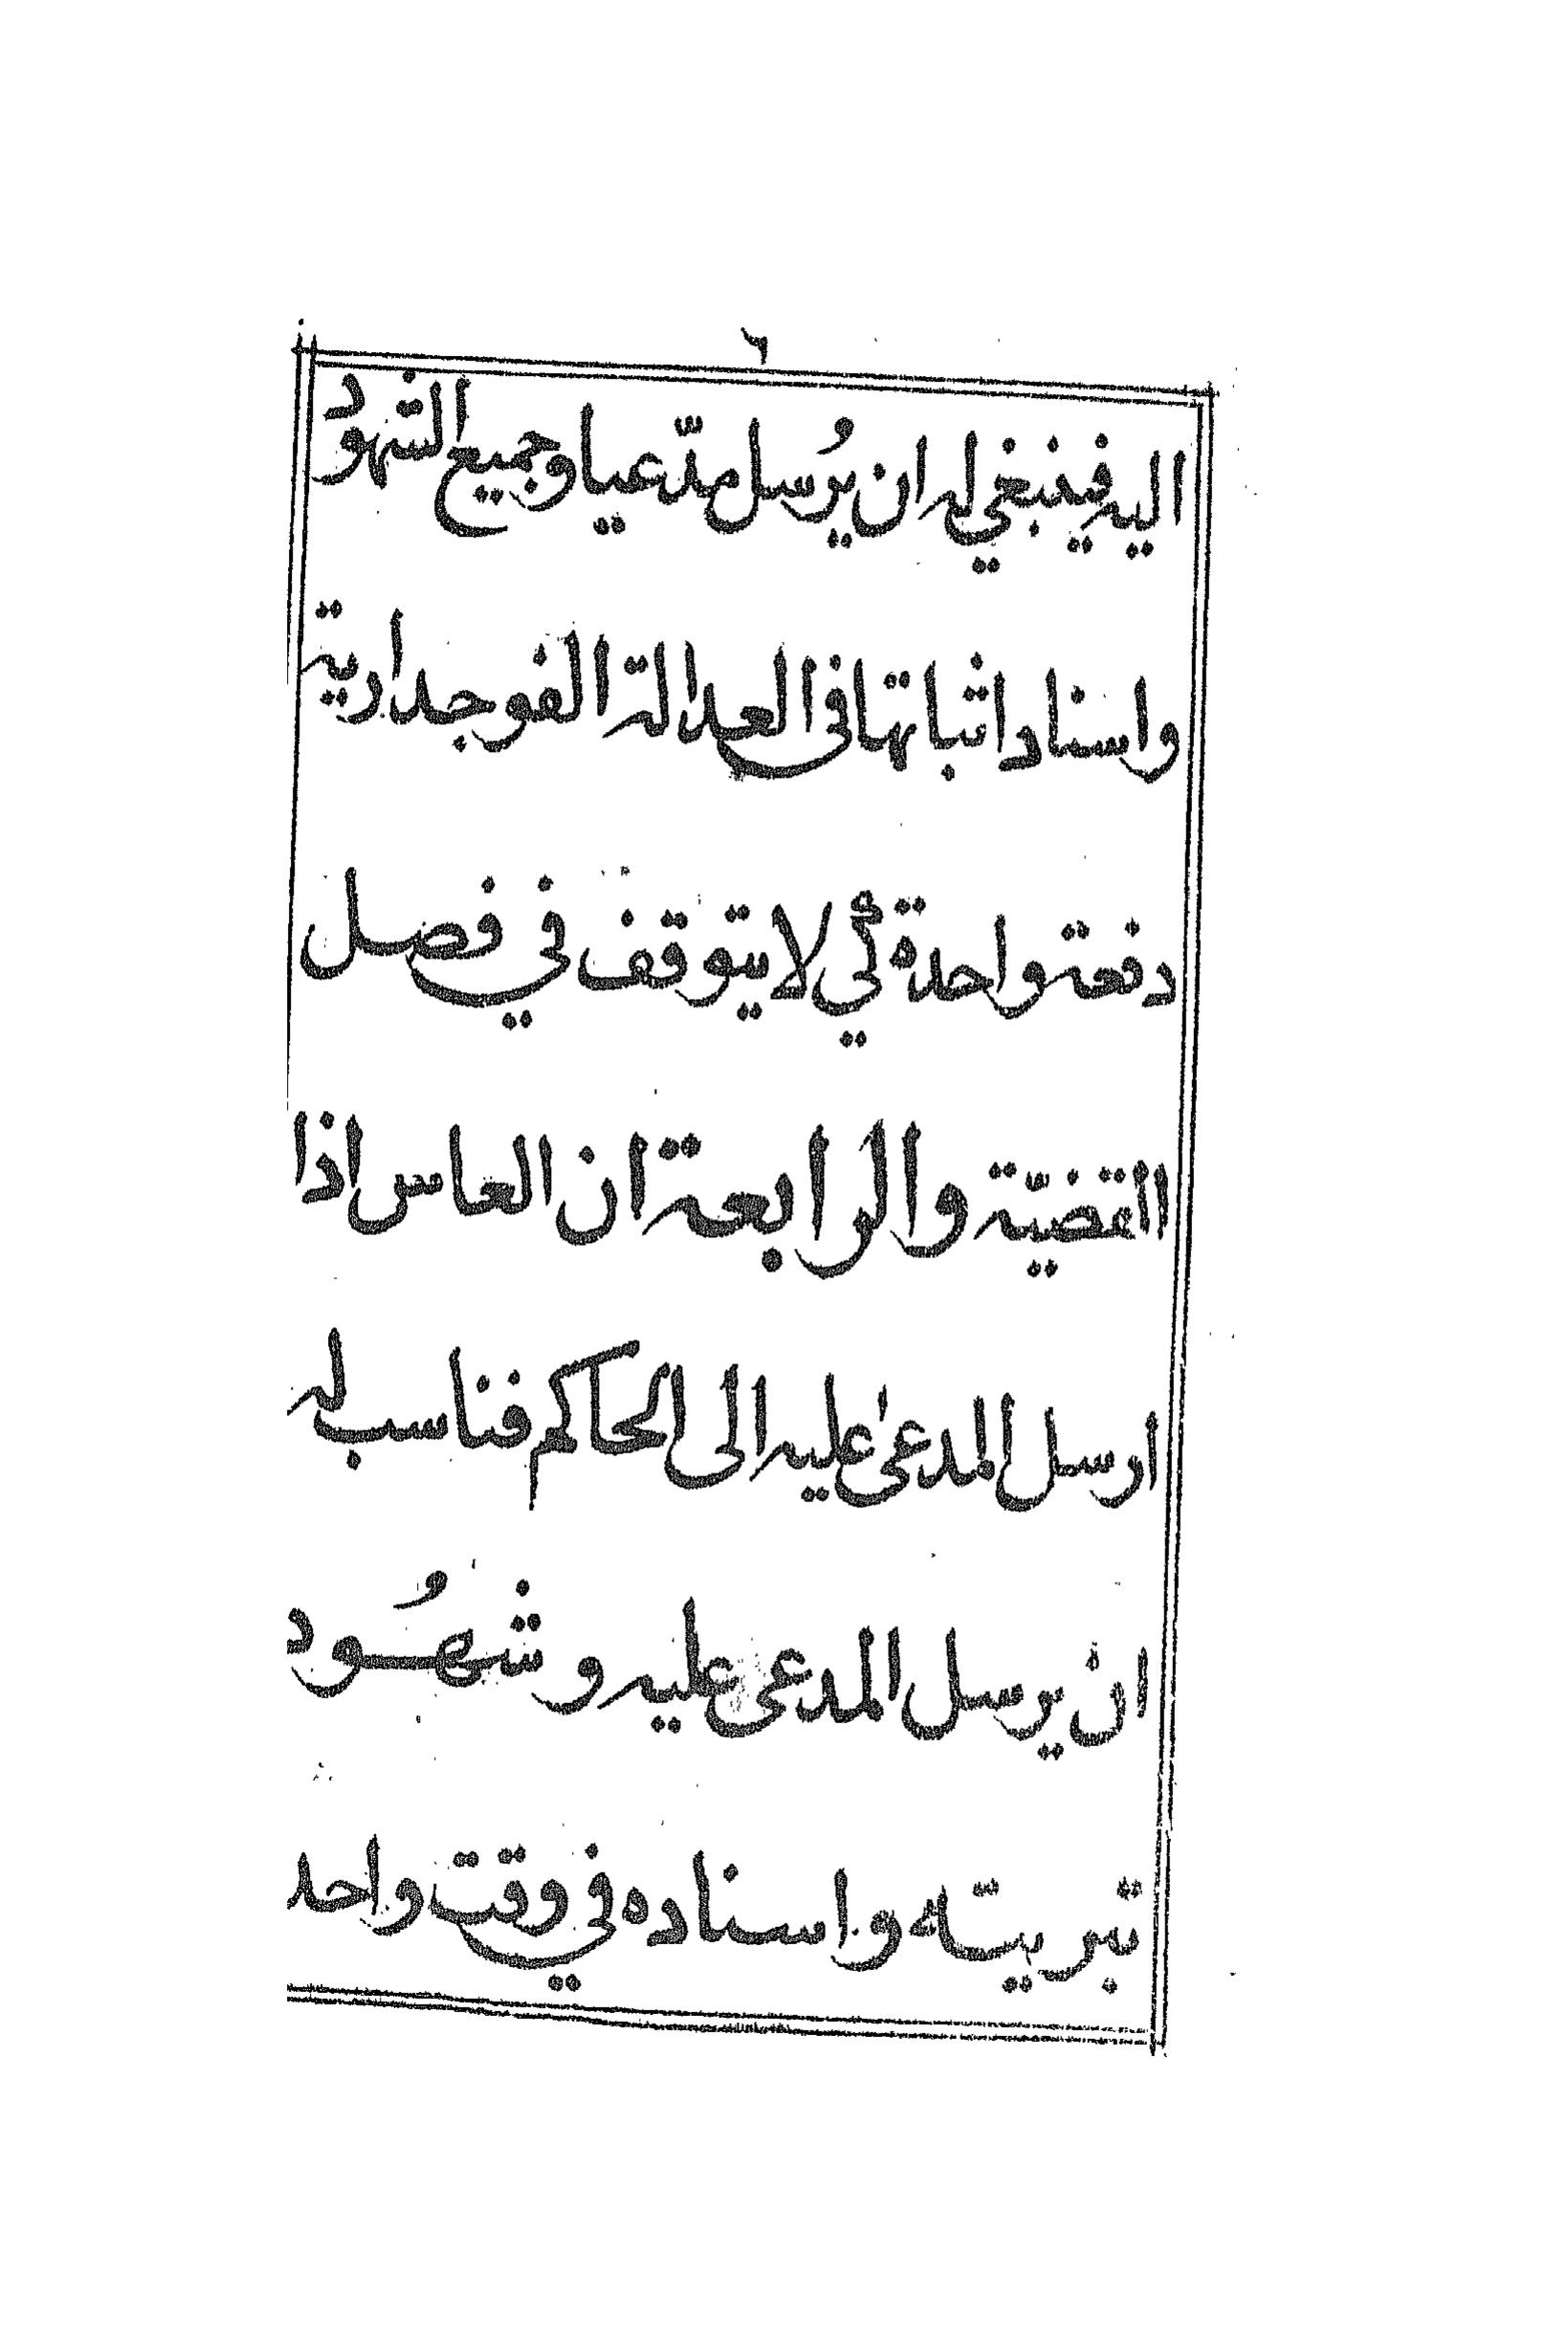 ٦
اليه فينبغي له ان يُرسل مدّعيا وجميع الشهود
واسناد اثباتها في العدالة الفوجدارية
دفعة واحدة كي لا يتوقف في فصل
القضيّة والرابعة ان العاس اذا
ارسل المدعىٰ عليه الى الحاكم فناسب له
ان يرسل المدعى عليه و شهُود
تبريته واسناده في وقت واحد